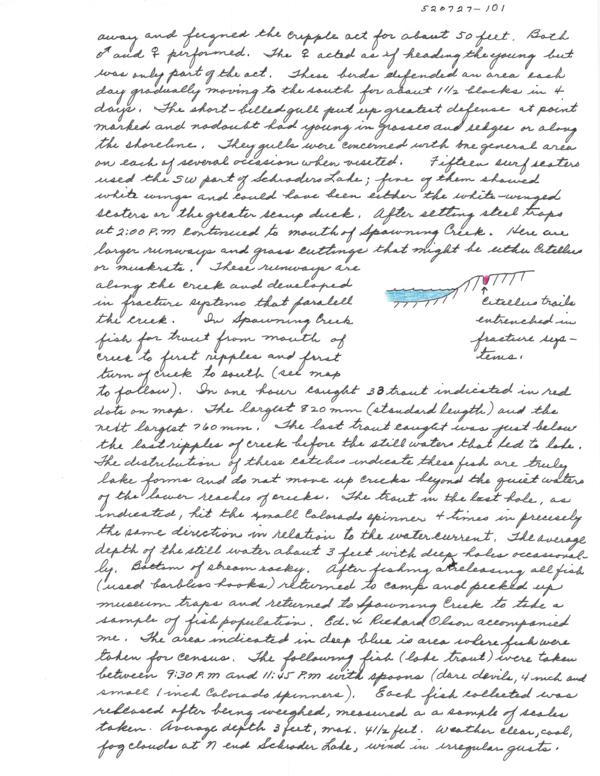 520727-101
away and feigned the cripple act for about 50 feet. Both
♂ and ♀ performed. The ♀ acted as if heading the young but
was only part of the act. These birds defended an area each
day gradually moving to the south for about 1 1/2 blocks in 4
days. The short-billed gull put up greatest defense at point
marked and nodoubt had young in grasses and sedges or along
the shoreline. They gulls were concerned with one general area
on each of several occasion when visited. Fifteen surf scoters
used the SW part of Schraders Lake; five of them showed
white wings and could have been either the white-winged
scoters or the greater scaup duck. After setting steel traps
at 2:00 P.M continued to mouth of Spawning Creek. Here are
larger runways and grass cuttings that might be either Citellus
or muskrats. These runways are
along the creek and developed
in fracture systems that paralell
the creek. In Spawning Creek
fish for trout from mouth of
creek to first ripples and first
turn of creek to south (see map
Citellus trails
entrenched in
fracture sys-
tems.
to follow). In one hour caught 33 trout indicated in red
dots on map. The largest 820 mm (standard length) and the
next largest 760 mm. The last trout caught was just below
the last ripples of creek before the still water that led to lake.
The distribution of these catches indicate these fish are truly
lake forms and do not move up creeks beyond the quiet waters
of the lower reaches of creeks. The trout in the last hole, as
indicated, hit the small Colorado spinner 4 times in precisely
the same direction in relation to the water current. The average
depth of the still water about 3 feet with deep holes occasional-
ly. Bottom of stream rocky. After fishing & releasing all fish
(used barbless hooks) returned to camp and picked up
museum traps and returned to Spawning Creek to take a
sample of fish population. Ed. & Richard Olson accompanied
me. The area indicated in deep blue is area where fish were
taken for census. The following fish (lake trout) were taken
between 9:30 P.M and 11:45 P.M with spoons (dare devils, 4 inch and
small 1 inch Colorado spinners). Each fish collected was
released after being weighed, measured a a sample of scales
taken. Average depth 3 feet, max. 4 1/2 feet. Weather clear, cool,
fog clouds at N end Schrader Lake, wind in irregular gusts.